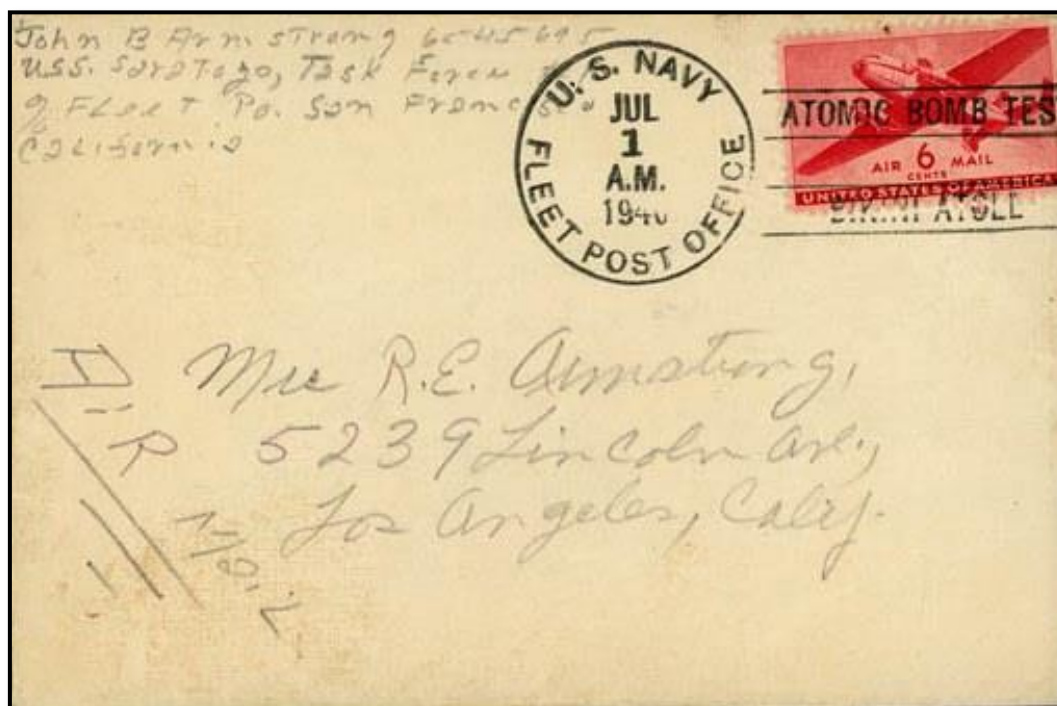 John B Armstrong
USS. Saratoga, Task Force
℅ Fleet Po. San Francisco
California
U.S. NAVY
JUL
1
A.M.
194
FLEET POST OFFICE
ATOMIC BOMB TES
AIR 6 MAIL
CENTS
UNITED STATES OF AMERICA
BIKINI ATOLL
R.E. Armstrong,
5239 Lincoln Ave,
Los Angeles, Calif.
Air
Mail